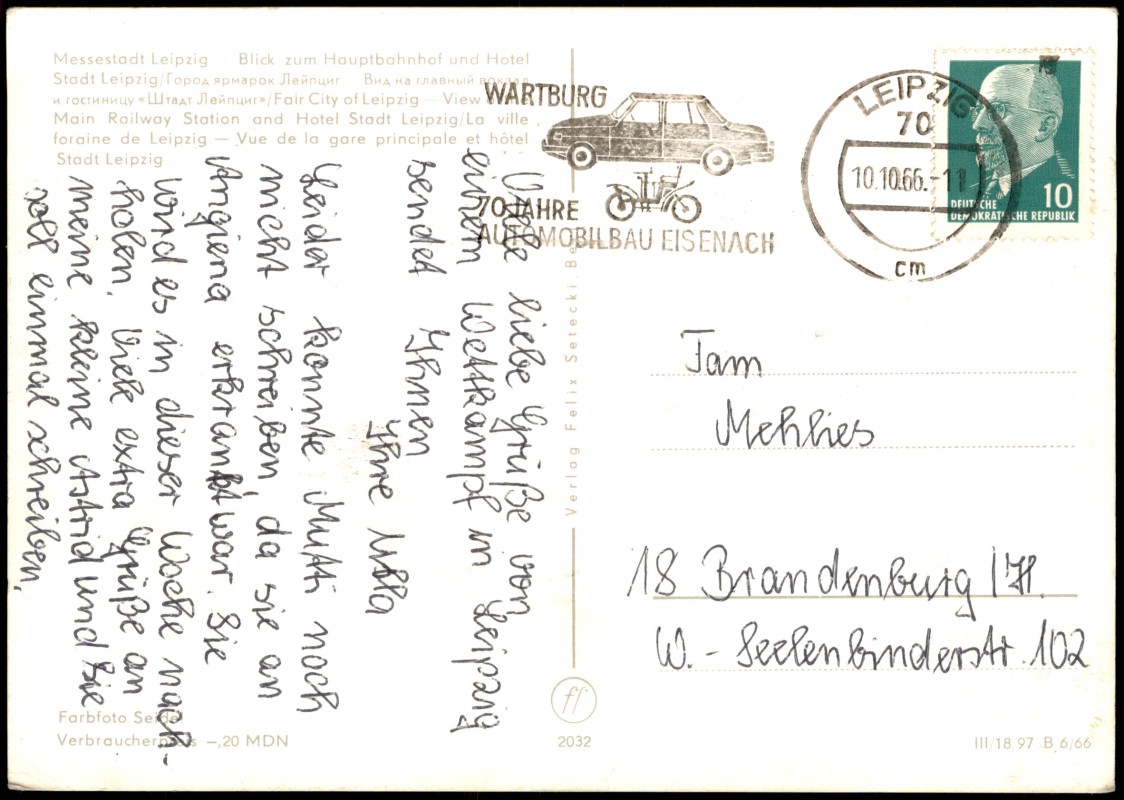 Messestadt Leipzig Blick zum Hauptbahnhof und Hotel
Stadt Leipzig/Город ярмарок Лейпциг Вид на главный вокзал
и гостиницу «Штадт Лейпциг»/Fair City of Leipzig – View
Main Railway Station and Hotel Stadt Leipzig/La ville
foraine de Leipzig — Vue de la gare principale et hôtel
Stadt Leipzig
WARTBURG
70 JAHRE
AUTOMOBILBAU EISENACH
LEIPZIG
70
10.10.66.-11
cm
10
DEUTSCHE
DEMOKRATISCHE REPUBLIK
Viele liebe Grüße von
einem Wettkampf in Leipzig
sendet Ihnen
Ihre Ulla
Leider konnte Mutti noch
nicht schreiben, da sie an
Angiena erkrankt war. Sie
wird es in dieser Woche nach-
holen. Viele extra Grüße an
meine kleine Astrid und Sie
soll einmal schreiben.
Verlag Felix Setecki B
Fam
Mehlies
18 Brandenburg/H.
W. - Seelenbinderstr. 102
Farbfoto Seidel
Verbraucherpreis –,20 MDN
ff
2032
III/18 97 B 6/66